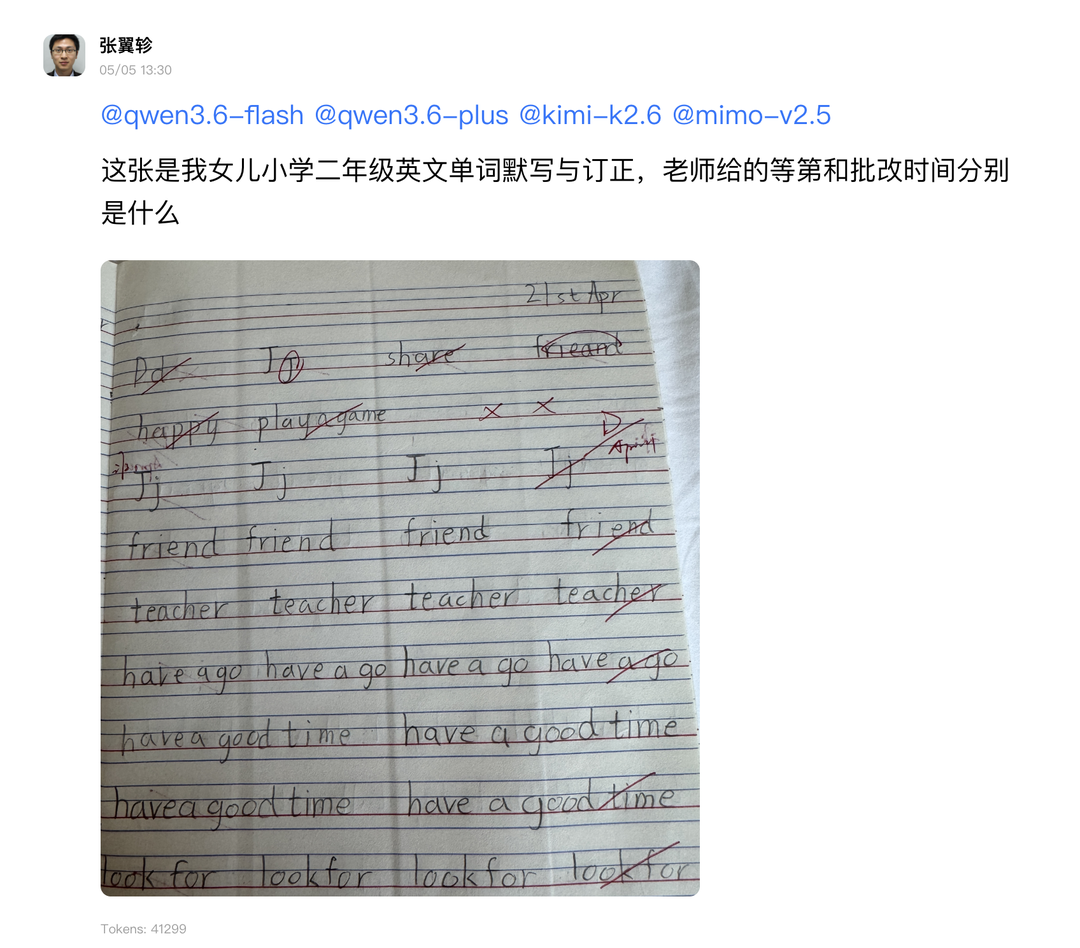 张翼轸
05/05 13:30
@qwen3.6-flash @qwen3.6-plus @kimi-k2.6 @mimo-v2.5
这张是我女儿小学二年级英文单词默写与订正，老师给的等第和批改时间分别
是什么
21st Apr
Dd J share frieand
happy play a game × ×
D
Jj Jj Jj Jj
friend friend friend friend
teacher teacher teacher teacher
have a go have a go have a go have a go
have a good time have a good time
have a good time have a good time
look for look for look for look for
Tokens: 41299